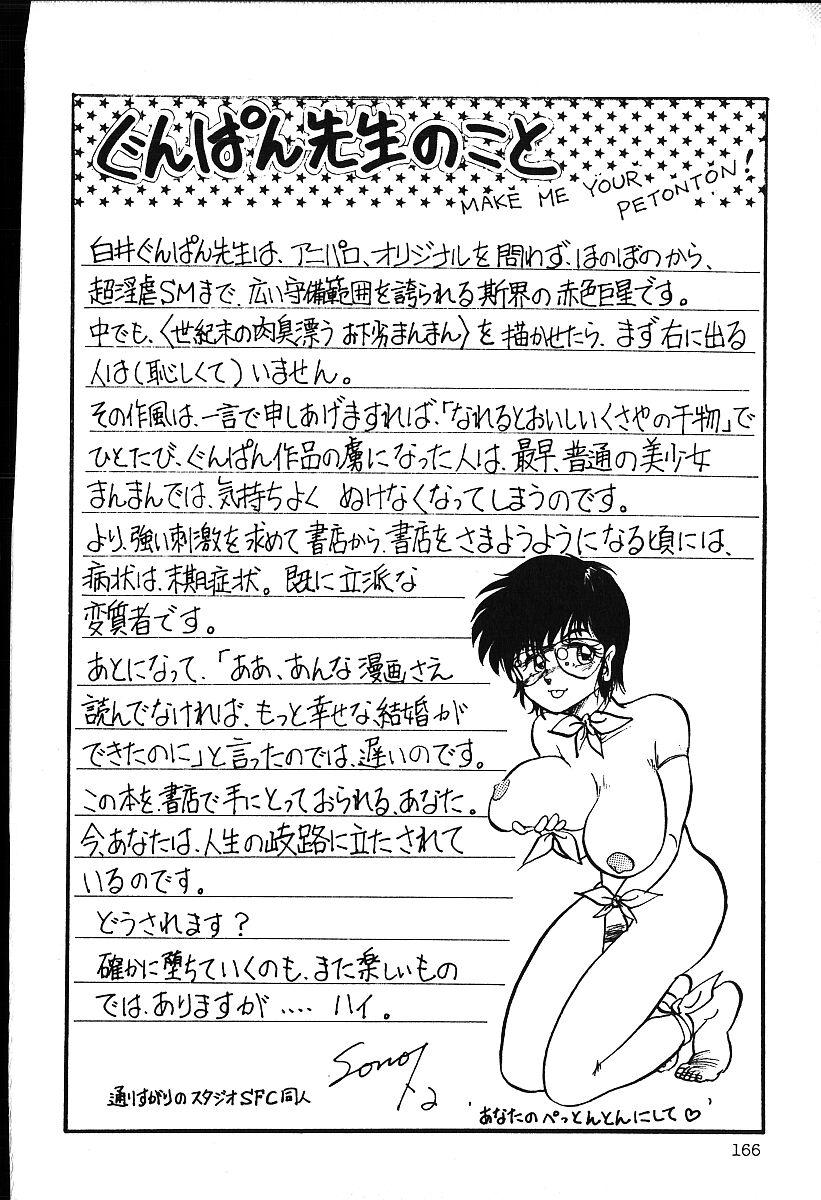 ぐんぱん先生のこと
MAKE ME YOUR
PETONTON!
白井ぐんぱん先生は、アニパロ、オリジナルを問わず、ほのぼのから、
超淫虐SMまで、広い守備範囲を誇られる斯界の赤色巨星です。
中でも、〈世紀末の肉臭漂う お下劣まんまん〉を描かせたら、まず右に出る
人は(恥しくて)いません。
その作風は、一言で申しあげますれば、「なれるとおいしいくさやの干物」で
ひとたび、ぐんぱん作品の虜になった人は、最早、普通の美少女
まんまんでは、気持ちよく ぬけなくなってしまうのです。
より、強い刺激を求めて書店から、書店をさまようようになる頃には、
病状は、末期症状。既に立派な
変質者です。
あとになって、「ああ、あんな漫画さえ
読んでなければ、もっと幸せな、結婚が
できたのに」と言ったのでは、遅いのです。
この本を、書店で手にとっておられる、あなた。
今、あなたは、人生の岐路に立たされて
いるのです。
どうされます?
確かに堕ちていくのも、また楽しいもの
では、ありますが‥‥ ハイ。
通りすがりのスタジオSFC同人
あなたのぺっとんとんにして♡
166